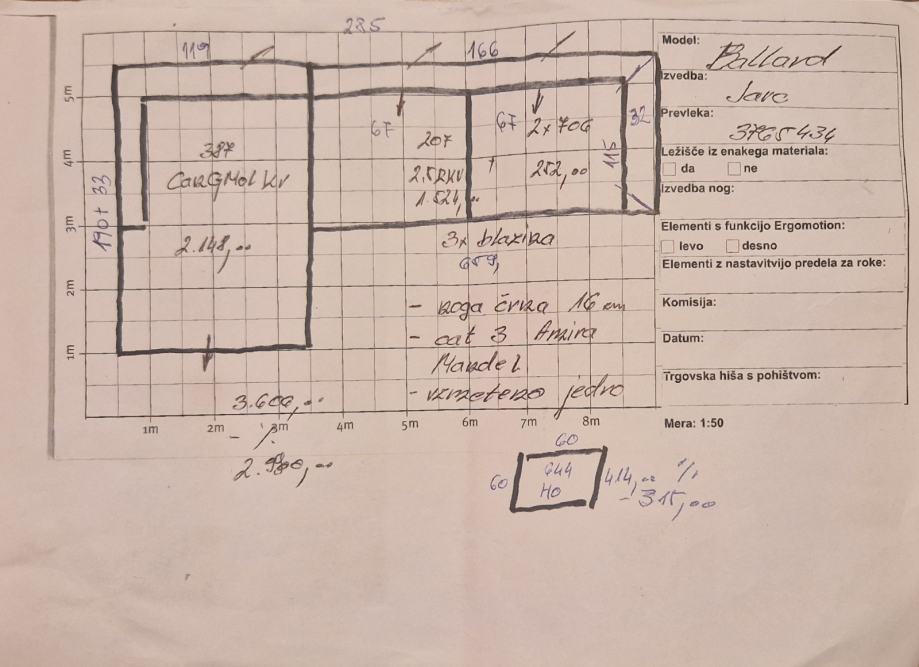 285
119
166
Model:
Ballard
Izvedba:
Jare
Prevleka:
3765434
Ležišče iz enakega materiala:
da
ne
Izvedba nog:
Elementi s funkcijo Ergomotion:
levo
desno
Elementi z nastavitvijo predela za roke:
Komisija:
Datum:
Trgovska hiša s pohištvom:
Mera: 1:50
5m
4m
3m
2m
1m
190+33
387
2.148,00
67
207
1.524,00
67
2x706
252,00
115
32
3x blazina
659,
- noga črna 16 cm
- cat 3
Mandel
- vzmeteno jedro
3.600,00
- %
1m
2m
3m
4m
5m
6m
7m
8m
60
60
644
HO
414,00 %
- 315,00